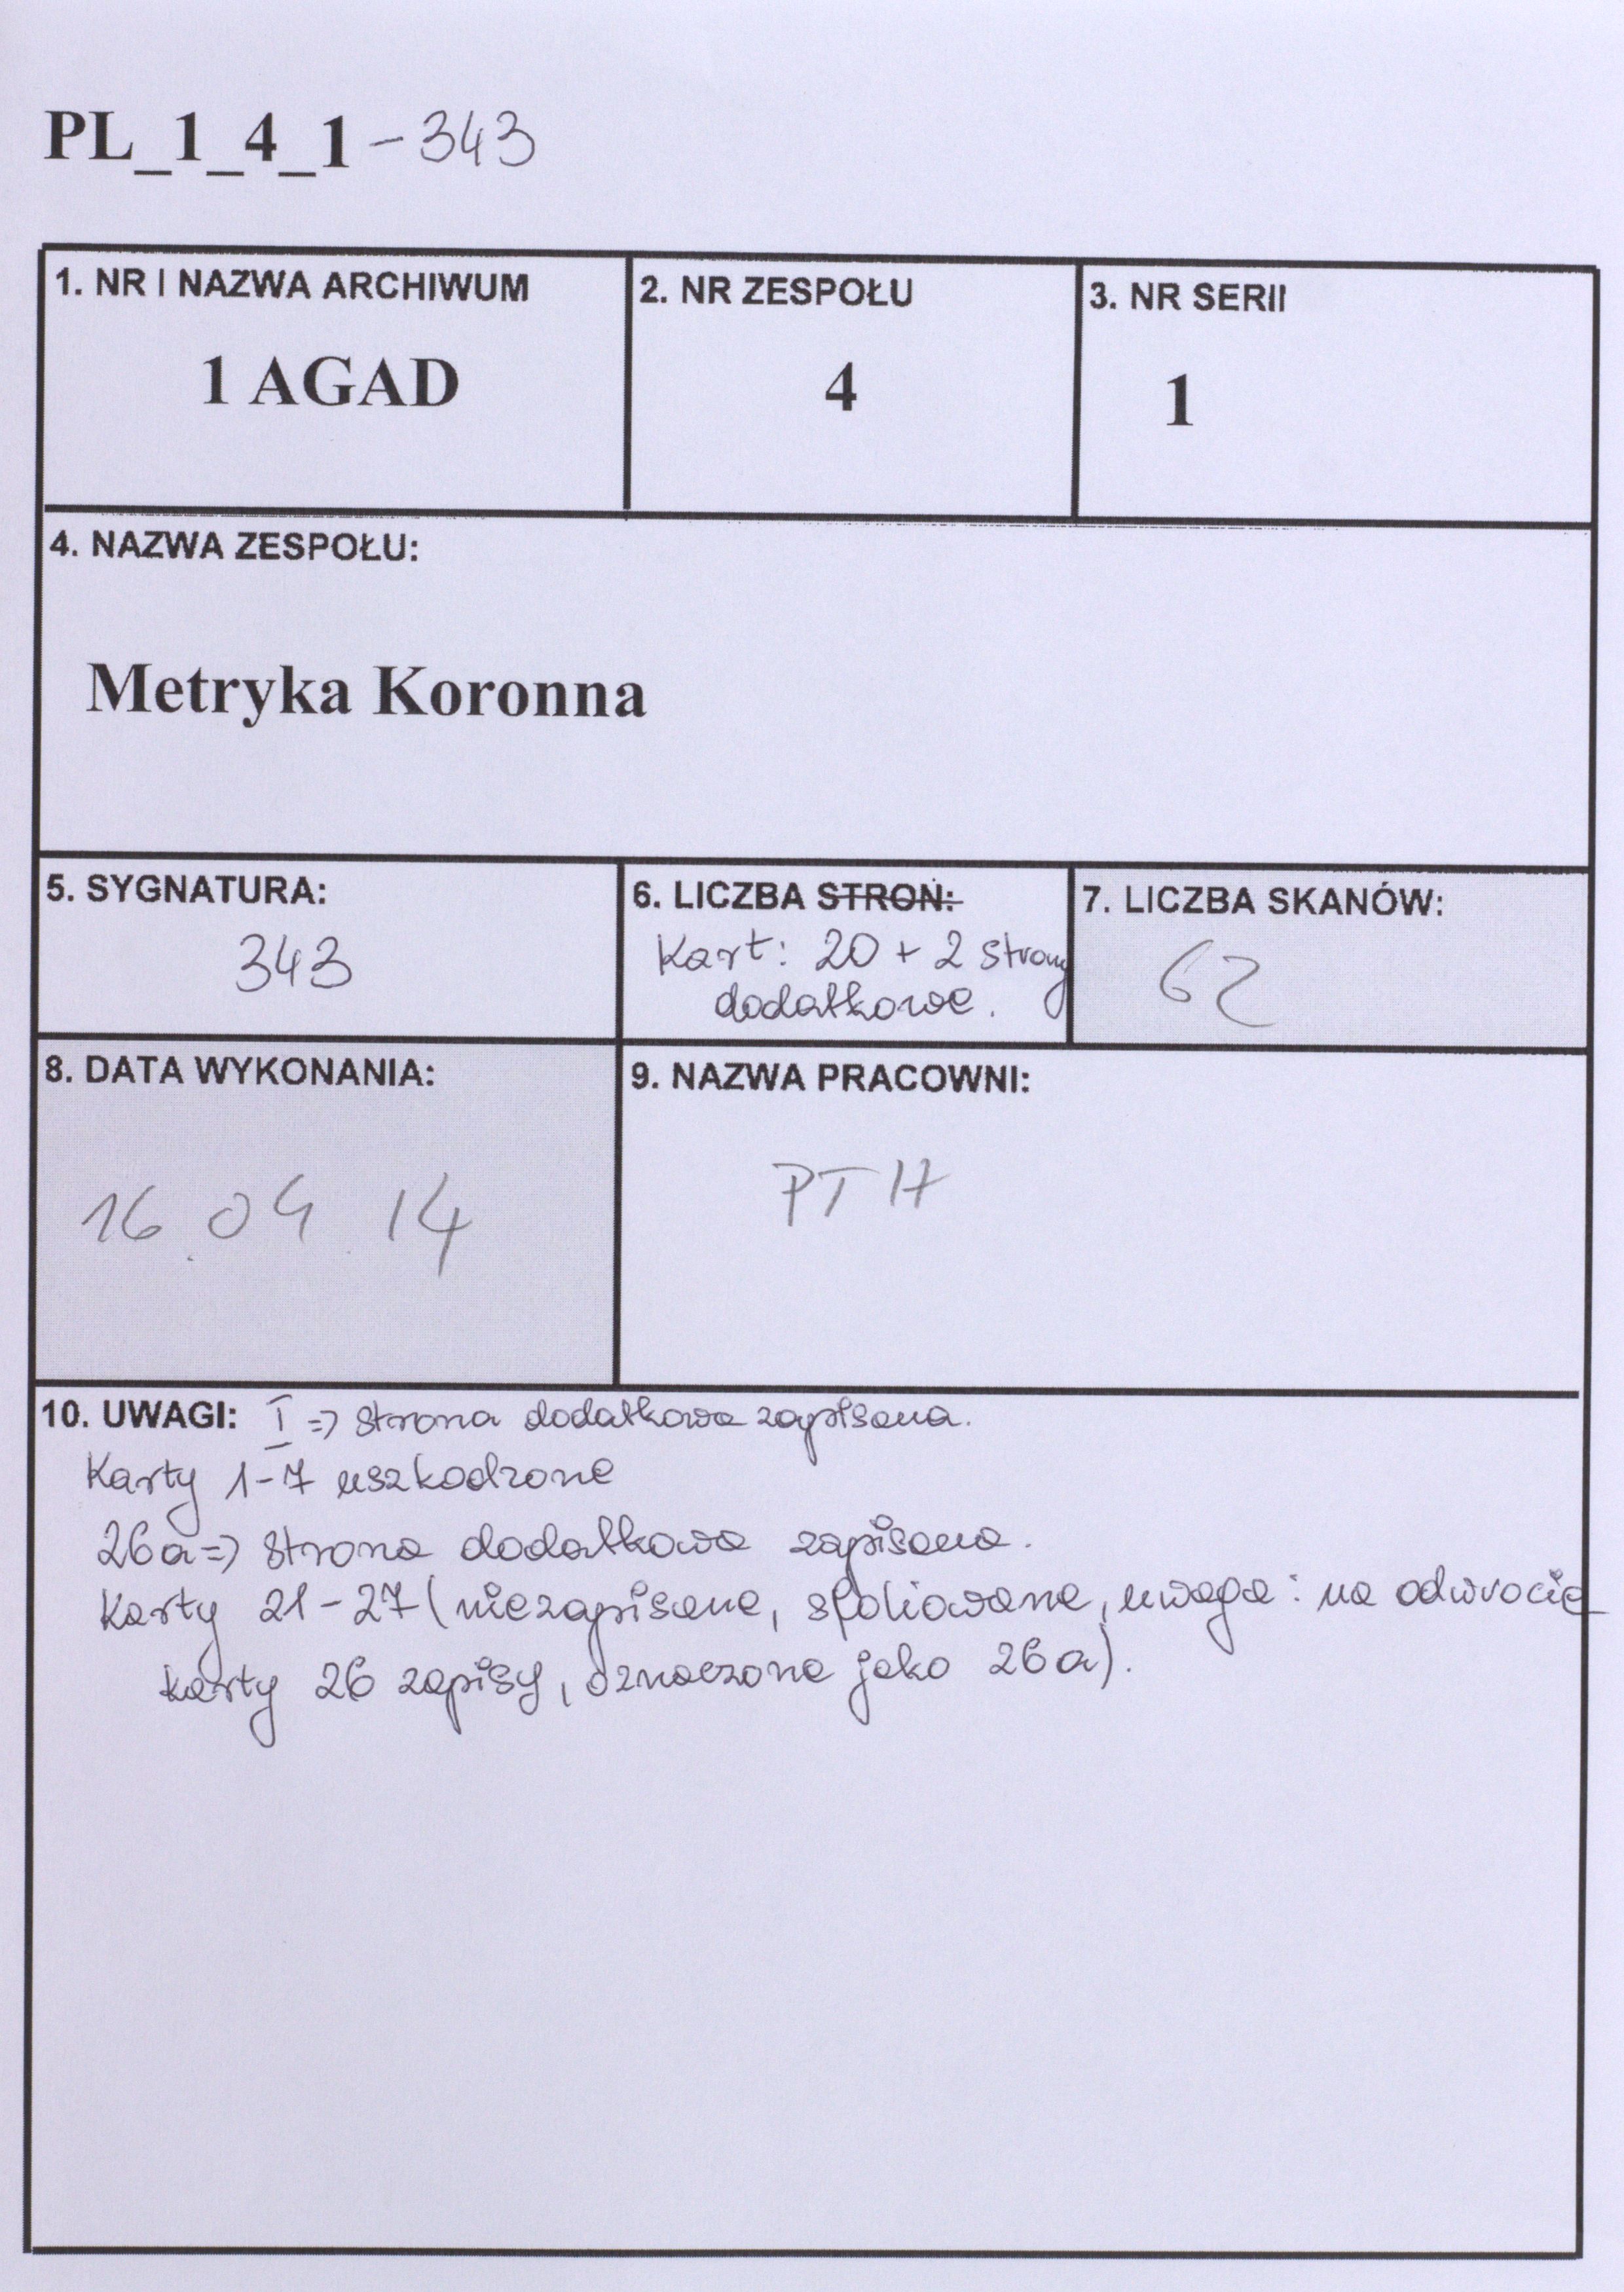 PL_1_4_1 - 343
1. NR I NAZWA ARCHIWUM
1 AGAD
2. NR ZESPOŁU
4
3. NR SERII
1
4. NAZWA ZESPOŁU:
Metryka Koronna
5. SYGNATURA:
343
6. LICZBA STRON:
Kart: 20 + 2 strony
dodatkowe.
7. LICZBA SKANÓW:
62
8. DATA WYKONANIA:
16.04.14
9. NAZWA PRACOWNI:
PTH
10. UWAGI: I => strona dodatkowa zapisana.
Karty 1-7 uszkodzone
26a => strona dodatkowa zapisana.
Karty 21-27 (niezapisane, sfoliowane, uwaga: na odwrocie
karty 26 zapisy, oznaczone jako 26a).